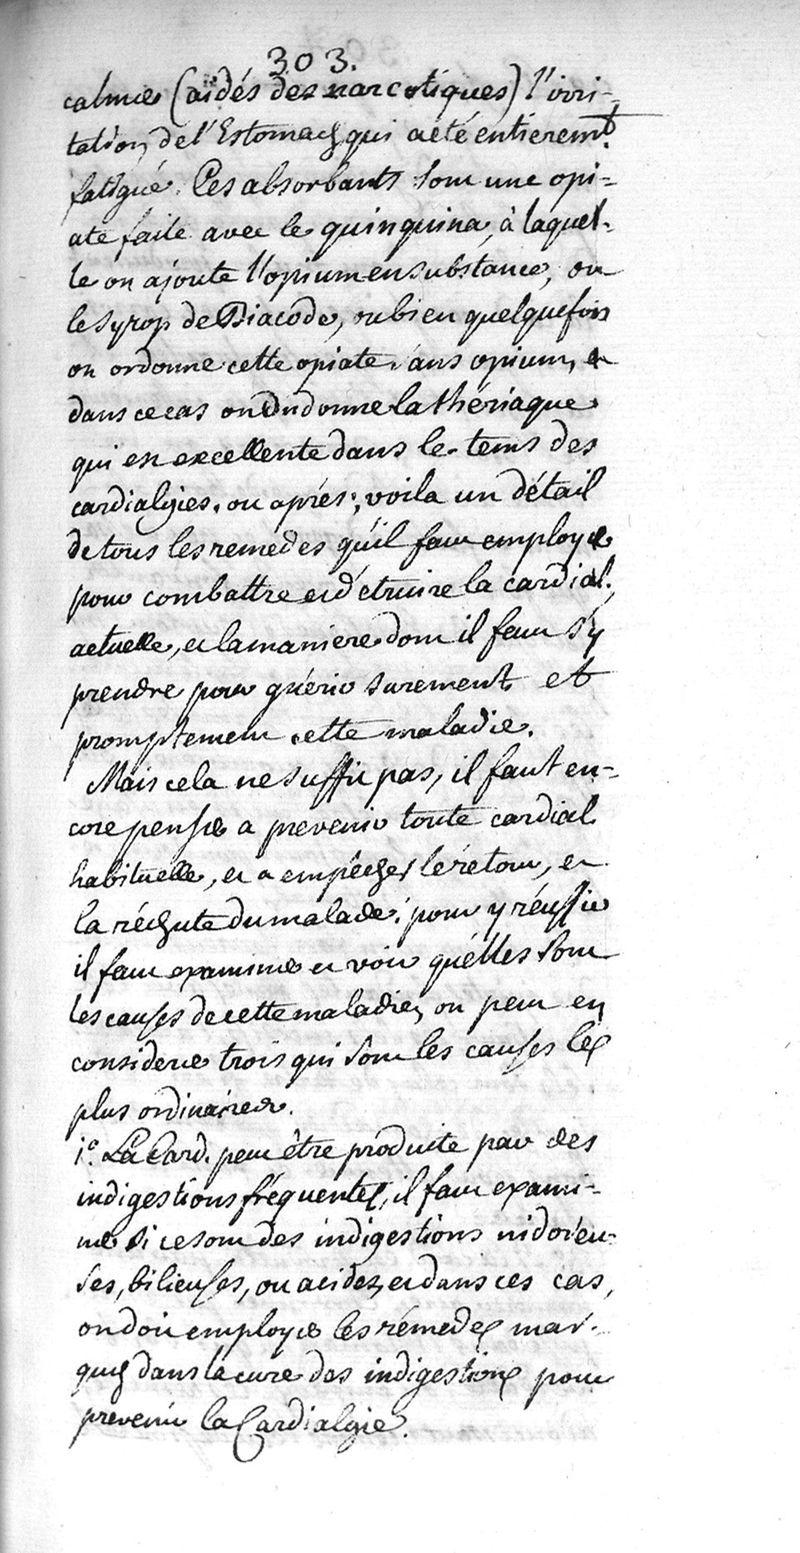 303.
calmer (aidés des narcotiques) l'irri-
tation de l'Estomach qui a eté entierem.t
fatigué. Ces absorbants sont une opi=
ate faite avec le quinquina, à laquel-
le on ajoute l'opium en substance, ou
le syrop de Diacode, ou bien quelquefois
on ordonne cette opiate sans opium, et
dans ce cas on donne la thériaque
qui est excellente dans le tems des
cardialgies, ou aprés; voila un détail
de tous les remédes qu'il faut employer
pour combattre et détruire la cardial.
actuelle, et la maniere dont il faut s'y
prendre pour guérir surement et
promptement cette maladie.
Mais cela ne suffit pas, il faut en=
core penser a prevenir toute cardial.
habituelle, et a empêcher le rétour, et
la réchute du malade: pour y réussir
il faut examiner et voir quélles sont
les causes de cette maladie, on peut en
considerer trois qui sont les causes les
plus ordinaires.
1.° La Card. peut être produite par des
indigestions fréquentes, il faut exami-
ner si ce sont des indigestions nidoreu-
ses, bilieuses, ou acides, et dans ces cas,
on doit employer les rémedes mar-
qués dans la cure des indigestions pour
prevenir la Cardialgie.